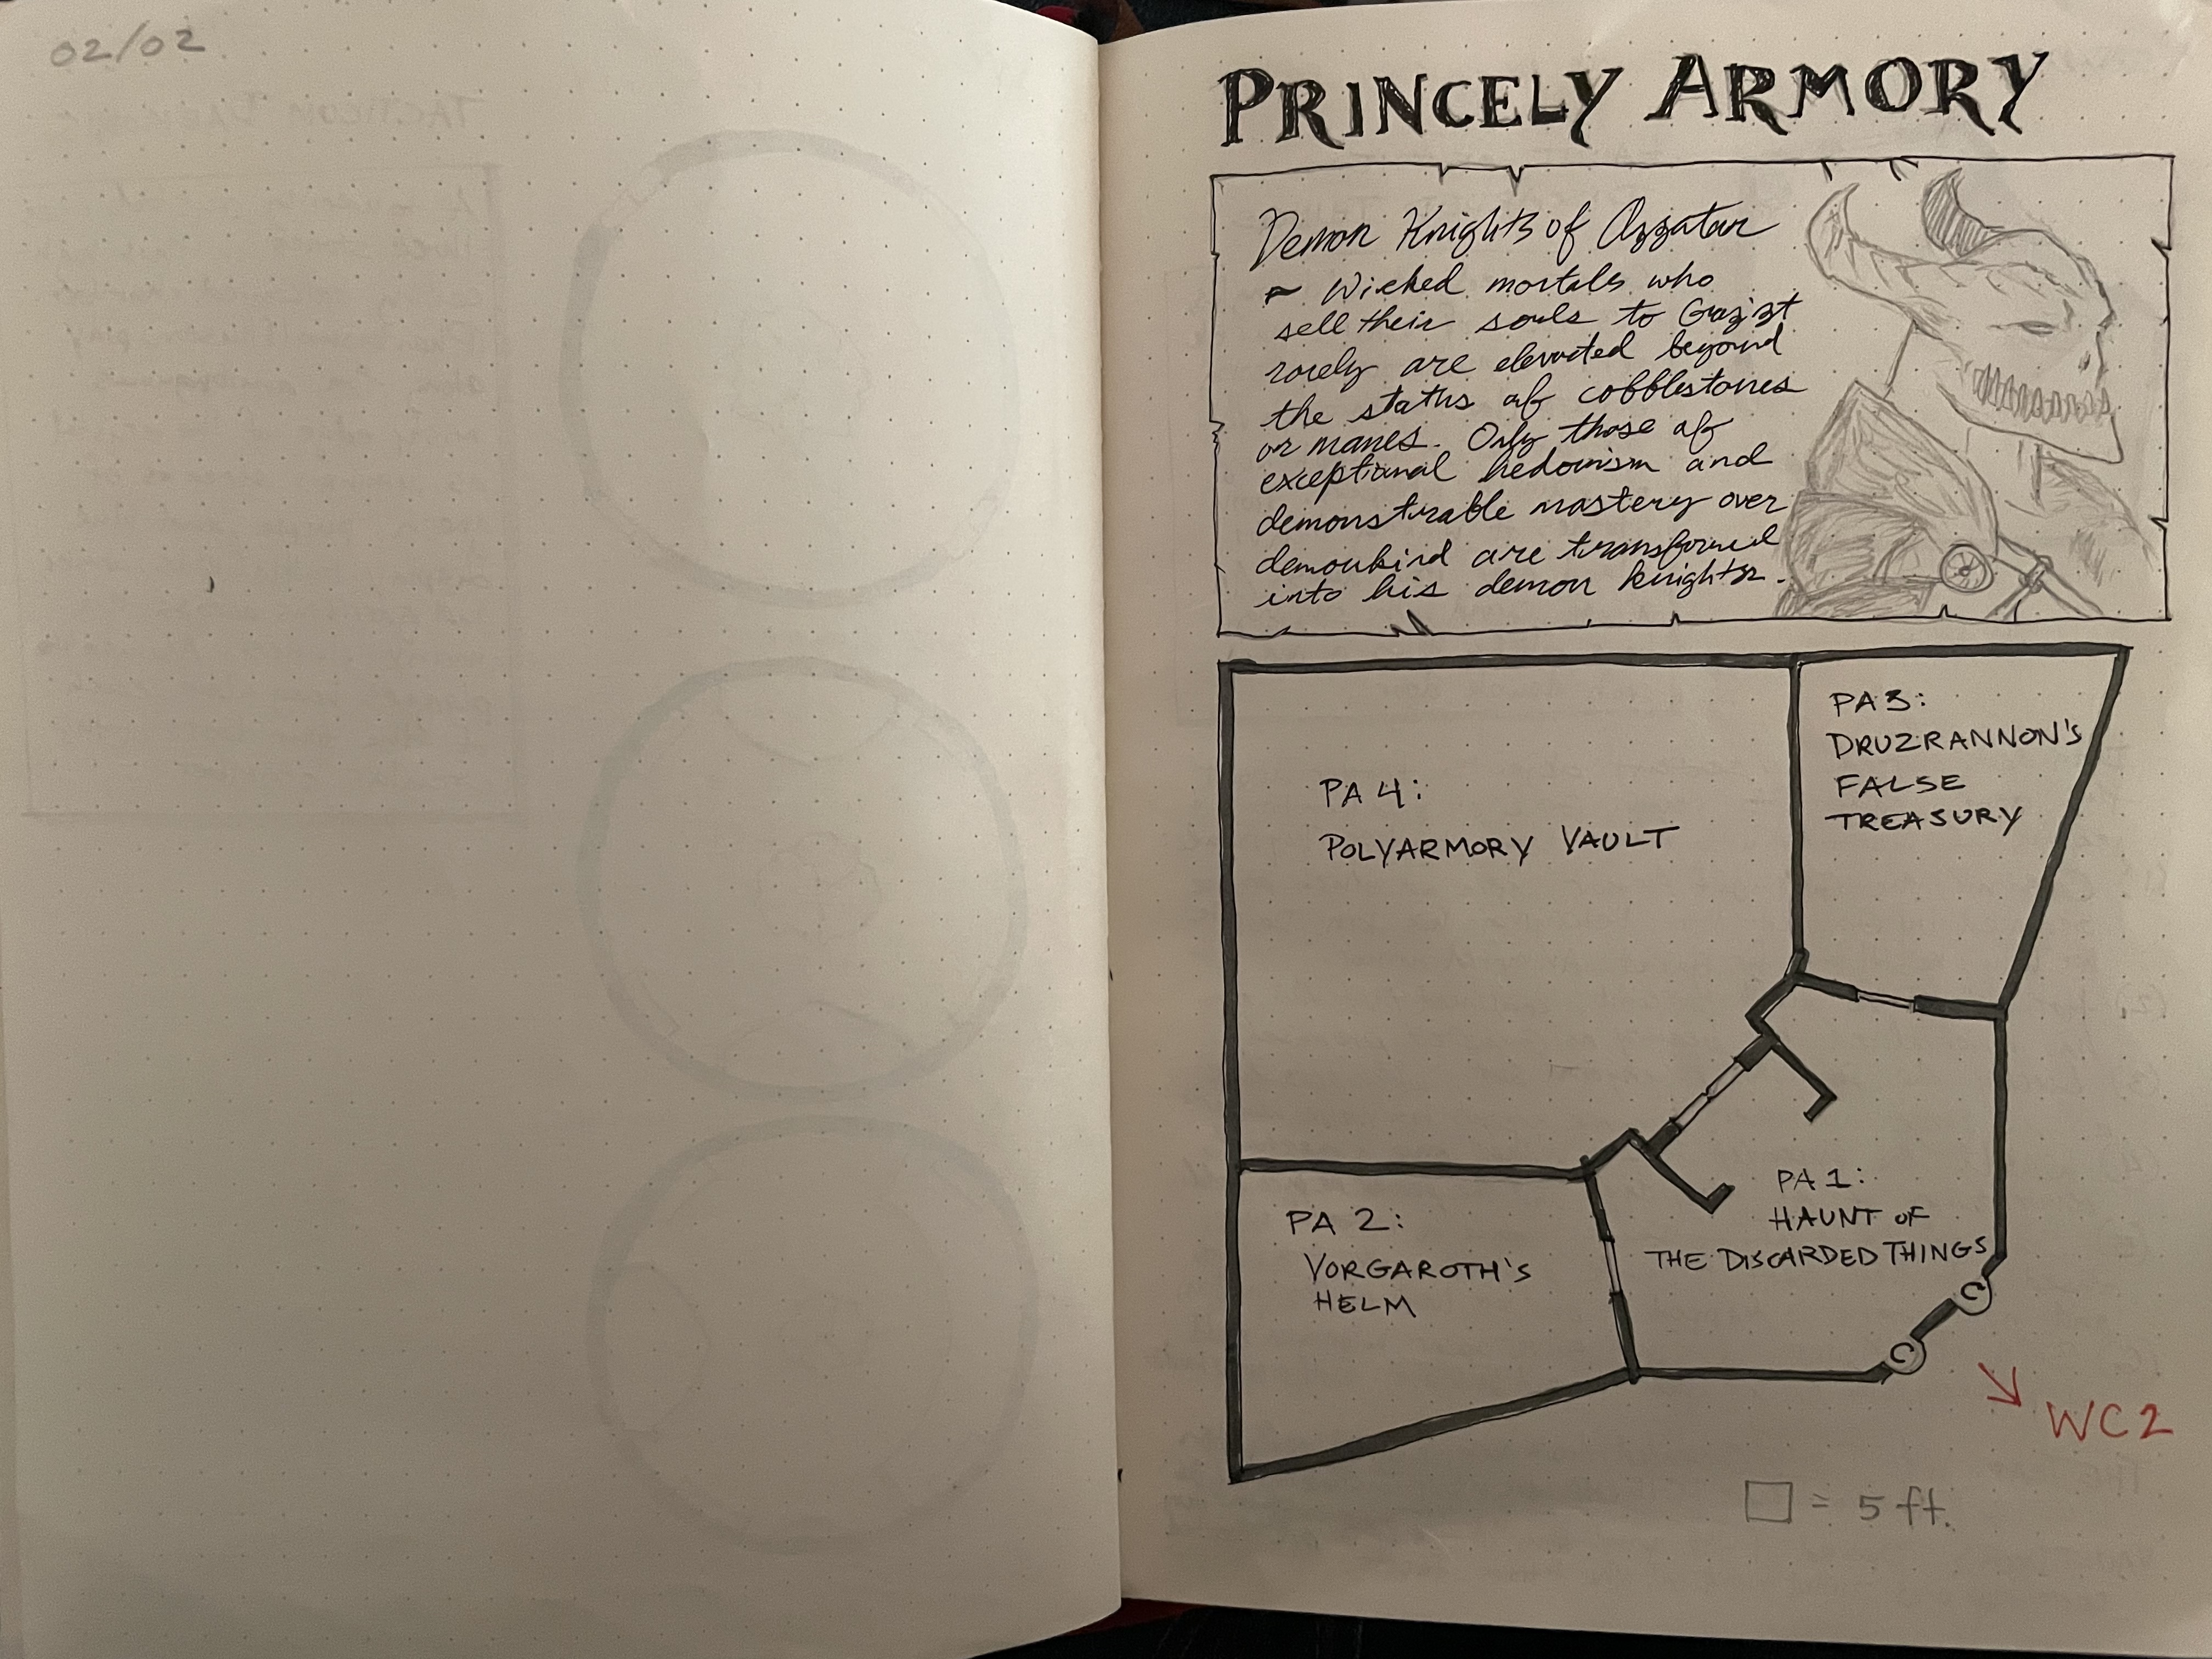 02/02
PRINCELY ARMORY
Demon Knights of Azzatar
- Wicked mortals who
sell their souls to Grazzt
rarely are elevated beyond
the status of cobblestones
or manes. Only those of
exceptional hedonism and
demonstrable mastery over
demonkind are transformed
into his demon knights.
PA3:
DRUZRANNON'S
FALSE
TREASURY
PA 4:
POLYARMORY VAULT
PA 1:
HAUNT OF
THE DISCARDED THINGS
PA 2:
VORGAROTH'S
HELM
C
C
WC2
= 5 ft.